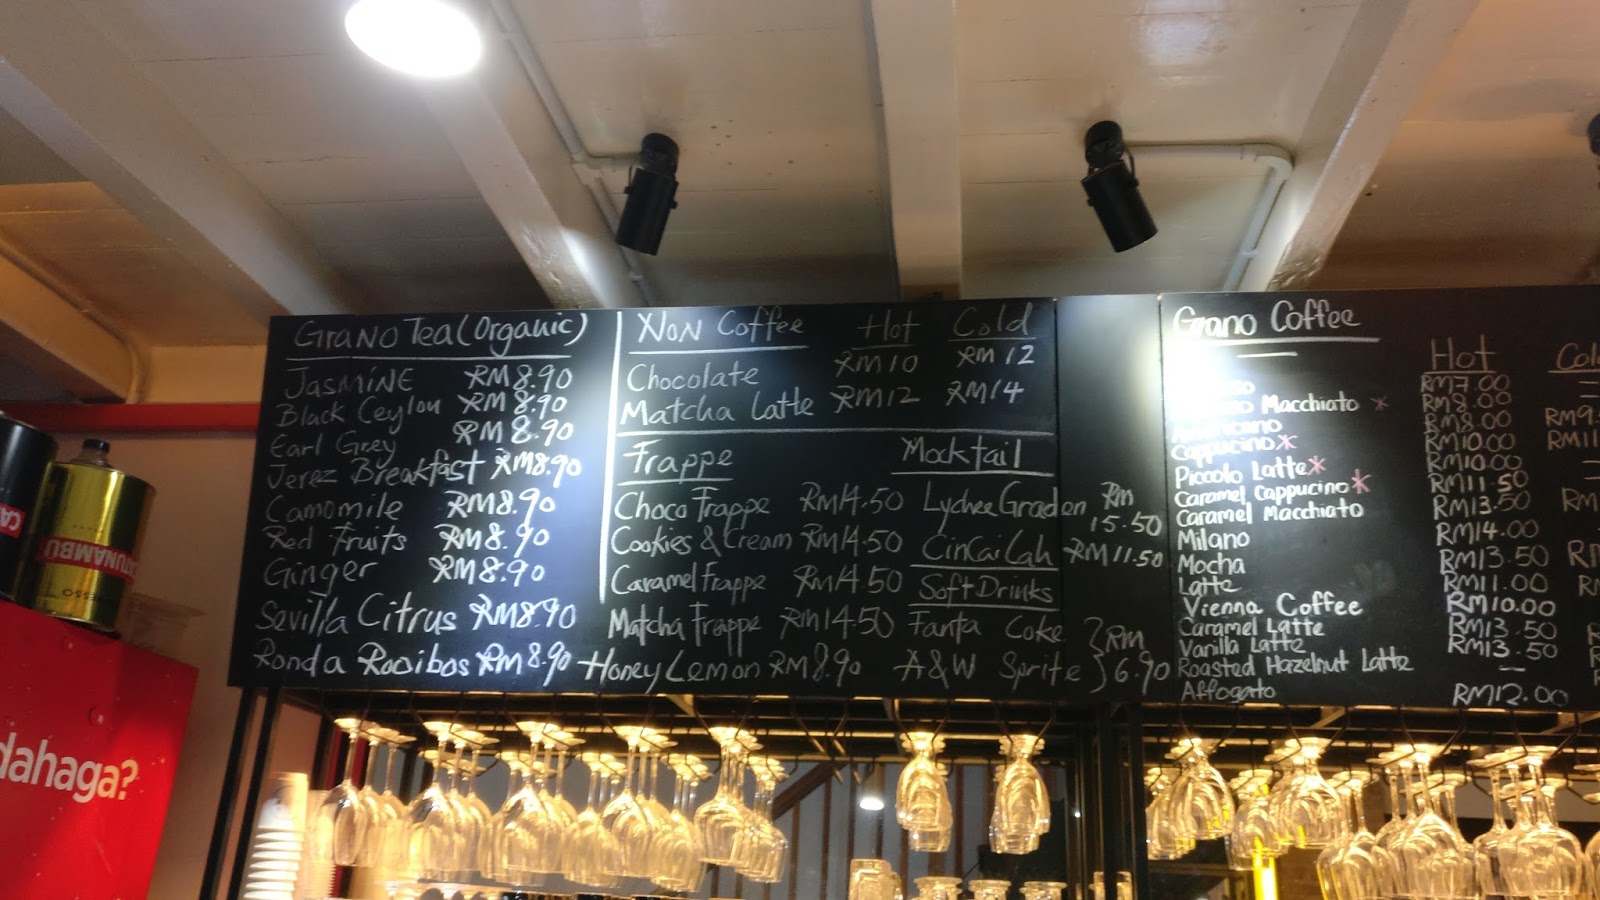 Grano Tea (Organic)
Jasmine RM 8.90
Black Ceylon RM 8.90
Earl Grey RM 8.90
Jerez Breakfast RM8.90
Camomile RM8.90
Red Fruits RM 8.90
Ginger RM8.90
Sevilla Citrus RM8.90
Ronda Rooibos RM 8.90
Non Coffee Hot Cold
Chocolate RM10 RM 12
Matcha Latte RM12 RM14
Frappe
Choco Frappe RM14.50
Cookies & Cream RM14.50
Caramel Frappe RM14.50
Matcha Frappe RM14.50
Honey Lemon RM 8.90
Mocktail
Lychee Graden RM 15.50
CinCaiLah RM11.50
Soft Drinks
Fanta Coke
A&W Sprite } RM 6.90
Grano Coffee
Hot
RM7.00
Macchiato * RM8.00
Americano RM8.00
Cappucino * RM10.00
Piccolo Latte * RM10.00
Caramel Cappucino * RM11.50
Caramel Macchiato RM13.50
Milano RM14.00
Mocha RM13.50
Latte RM11.00
Vienna Coffee RM10.00
Caramel Latte RM13.50
Vanilla Latte RM13.50
Roasted Hazelnut Latte —
Affogato RM12.00
dahaga?